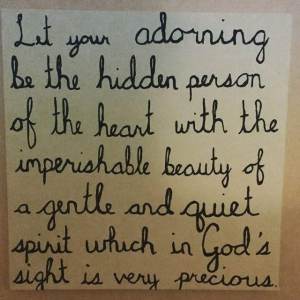 Let your adorning
be the hidden person
of the heart with the
imperishable beauty of
a gentle and quiet
spirit which in God's
sight is very precious.